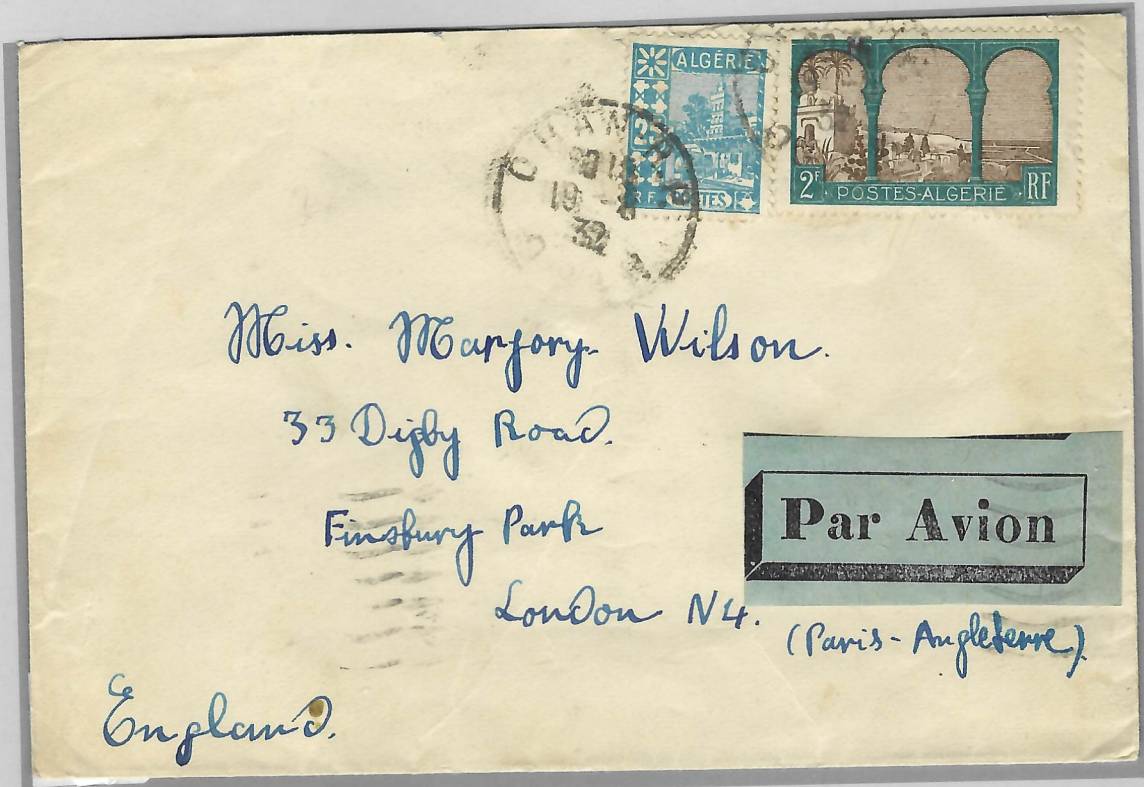 ALGÉRIE
25
R.F. POSTES
2F POSTES-ALGERIE RF
ORAN R.P
19 -8
32
Miss. Marjory Wilson.
33 Digby Road.
Finsbury Park
London N4.
England.
Par Avion
(Paris-Angleterre).